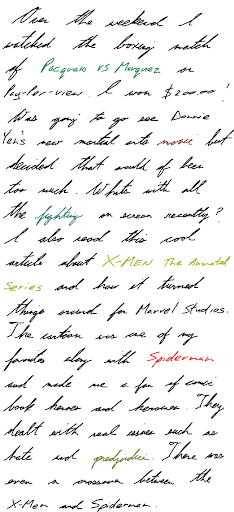 Over the weekend I
watched the boxing match
of Pacquaio VS Marquez on
Pay-Per-view. I won $200.00!
Was going to go see Donnie
Yen's new martial arts movie but
decided that would of been
too much. Whats with all
the fighting on screen recently?
I also read this cool
article about X-MEN The Animated
Series and how it turned
things around for Marvel Studios.
The cartoon was one of my
favorites along with Spiderman
and made me a fan of comic
book heroes and heroines. They
dealt with real issues such as
hate and predjudice. There was
even a crossover between the
X-Men and Spiderman.